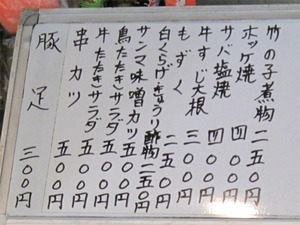 竹の子煮物 二五〇円
ホッケ焼 四〇〇円
サバ塩焼 四〇〇円
牛すじ大根 三〇〇円
もずく 二五〇円
白くらげきゅうり酢物 二五〇円
サンマ味噌カツ 五〇〇円
鳥たたきサラダ 五〇〇円
牛たたきサラダ 五〇〇円
串カツ 五〇〇円
豚足 三〇〇円